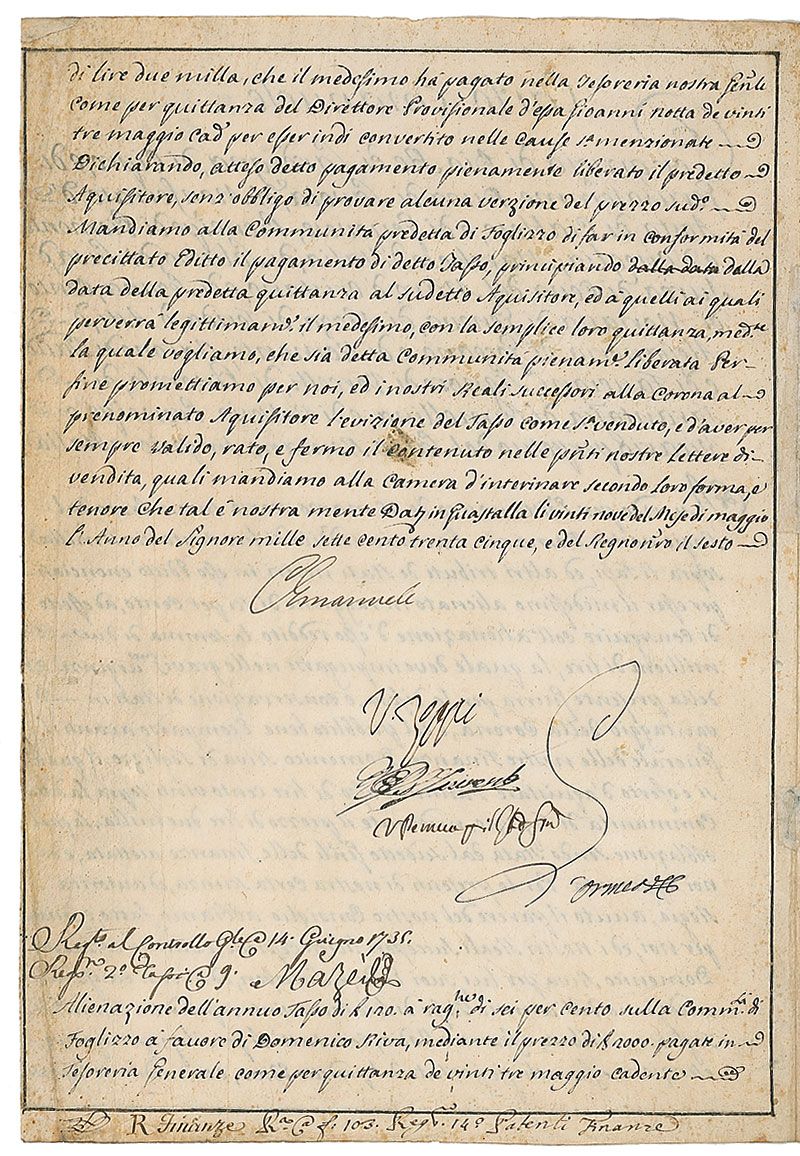 di lire due milla, che il medessimo há pagato nella Tesoreria nostra Gen͞le
come per quittanza del Direttore Provisionale d'essa Gioanni notta de vinti
tre maggio Cad.e per esser indi convertito nelle Cause s.a menzionate
Dichiarando, atteso detto pagamento pienamente liberato il predetto
Aquisitore, senz'obbligo di provare alcuna verzione del prezzo sud.o
Mandiamo alla Communitá predetta di Foglizzo di far in conformitá del
precittato Editto il pagamento di detto Tasso, principiando dalla data dalla
data della predetta quittanza al sudetto Aquisitore, ed á quelli ai quali
perverrá legittimam.e il medesimo, con la semplice loro quittanza, med.te
la quale vogliamo, che sia detta Communitá pienam.e liberata Per-
fine promettiamo per noi, ed i nostri Reali successori alla Corona al
prenominato Aquisitore l'evizione del Tasso come s.a venduto, e d'aver per
sempre valido, rato, e fermo il contenuto nelle pn͞ti nostre Lettere di
vendita, quali mandiamo alla Camera d'interinare secondo Loro forma, e
tenore Che tal é nostra mente Dat. in Guastalla li vinti nove del Mese di maggio
L'Anno del Signore mille sette cento trenta cinque, e del Regno nr͞o il sesto
CEmanuele
V. Zoppi
D'Ormea
Reg.ta al Controllo G.le 14. Giugno 1735.
Reg.ro 2.o Tassi 9.
Alienazione dell'annuo Tasso di £ 120. á rag.ne di sei per cento sulla Comm.tá di
Foglizzo á favore di Domenico Riva, mediante il prezzo di £ 2000. pagate in
Tesoreria Generale come per quittanza de vinti tre maggio cadente
R. Finanze f. 103. Reg.o 14.o Patenti Finanze